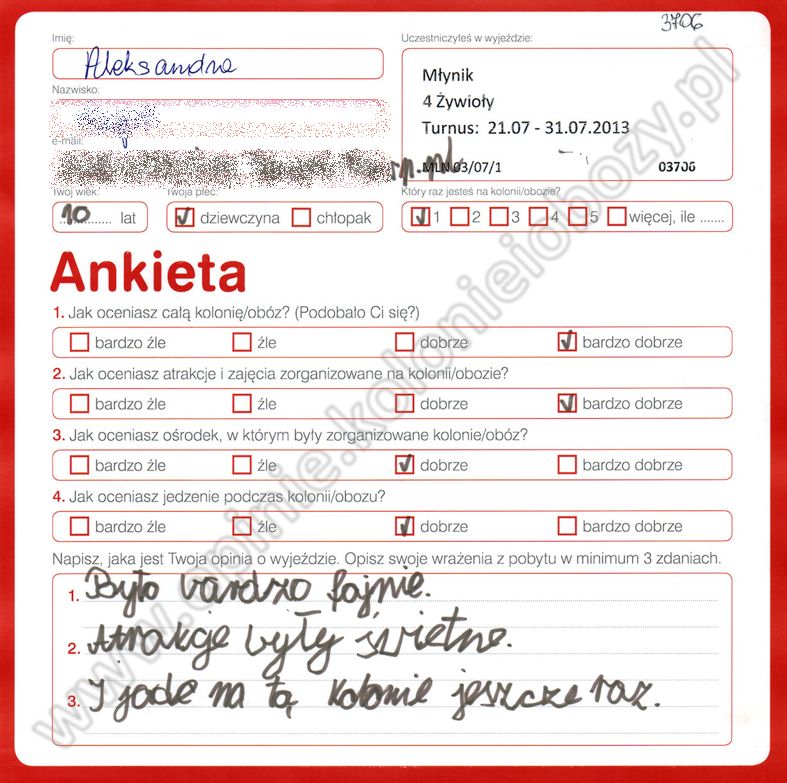 3706
Imię:
Uczestniczyłeś w wyjeździe:
Aleksandra
Młynik
4 Żywioły
Turnus: 21.07 - 31.07.2013
MLN 03/07/1 03706
Nazwisko:
e-mail:
Twój wiek:
Twoja płeć:
Który raz jesteś na kolonii/obozie?
10 lat
dziewczyna chłopak
1 2 3 4 5 więcej, ile .......
Ankieta
1. Jak oceniasz całą kolonię/obóz? (Podobało Ci się?)
bardzo źle źle dobrze bardzo dobrze
2. Jak oceniasz atrakcje i zajęcia zorganizowane na kolonii/obozie?
bardzo źle źle dobrze bardzo dobrze
3. Jak oceniasz ośrodek, w którym były zorganizowane kolonie/obóz?
bardzo źle źle dobrze bardzo dobrze
4. Jak oceniasz jedzenie podczas kolonii/obozu?
bardzo źle źle dobrze bardzo dobrze
Napisz, jaka jest Twoja opinia o wyjeździe. Opisz swoje wrażenia z pobytu w minimum 3 zdaniach.
1. Było bardzo fajnie.
2. Atrakcje były świetne.
3. I jade na tą kolonie jeszcze raz.
www.opinie.kolonieiobozy.pl